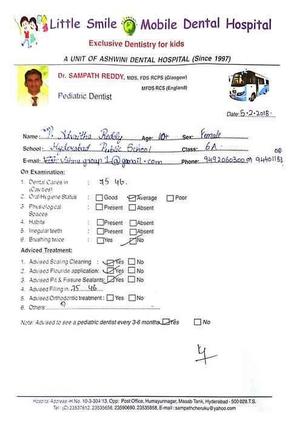 Little Smile Mobile Dental Hospital
Exclusive Dentistry for kids
A UNIT OF ASHWINI DENTAL HOSPITAL (Since 1997)
Dr. SAMPATH REDDY, MDS, FDS RCPS (Glasgow)
MFDS RCS (England)
Pediatric Dentist
Date: 5-2-2018
Name: Reddy Age: 10+ Sex: Female
School: Hyderabad Public School Class: 6A
E-mail: Phone: 9492060300
On Examination:
1. Dental Caries in (Cavities) : 75 46.
2. Oral Hygiene Status : Good Average Poor
3. Physiological Spaces : Present Absent
4. Habits : Present Absent
5. Irregular teeth : Present Absent
6. Brushing twice : Yes No
Adviced Treatment:
1. Adviced Scaling Cleaning : Yes No
2. Adviced Flouride application: Yes No
3. Adviced Pit & Fissure Sealants: Yes No
4. Adviced Filling in 75 46
5. Adviced Orthodontic treatment : Yes No
6. Others
Note: Advised to see a pediatric dentist every 3-6 months Yes No
Hospital Address-H No. 10-3-304/13, Opp: Post Office, Humayunnagar, Masab Tank, Hyderabad - 500 028 T.S.
Tel: 23537612, 23535658, 23590690, 23535688, E-mail: sampathcheruku@yahoo.com